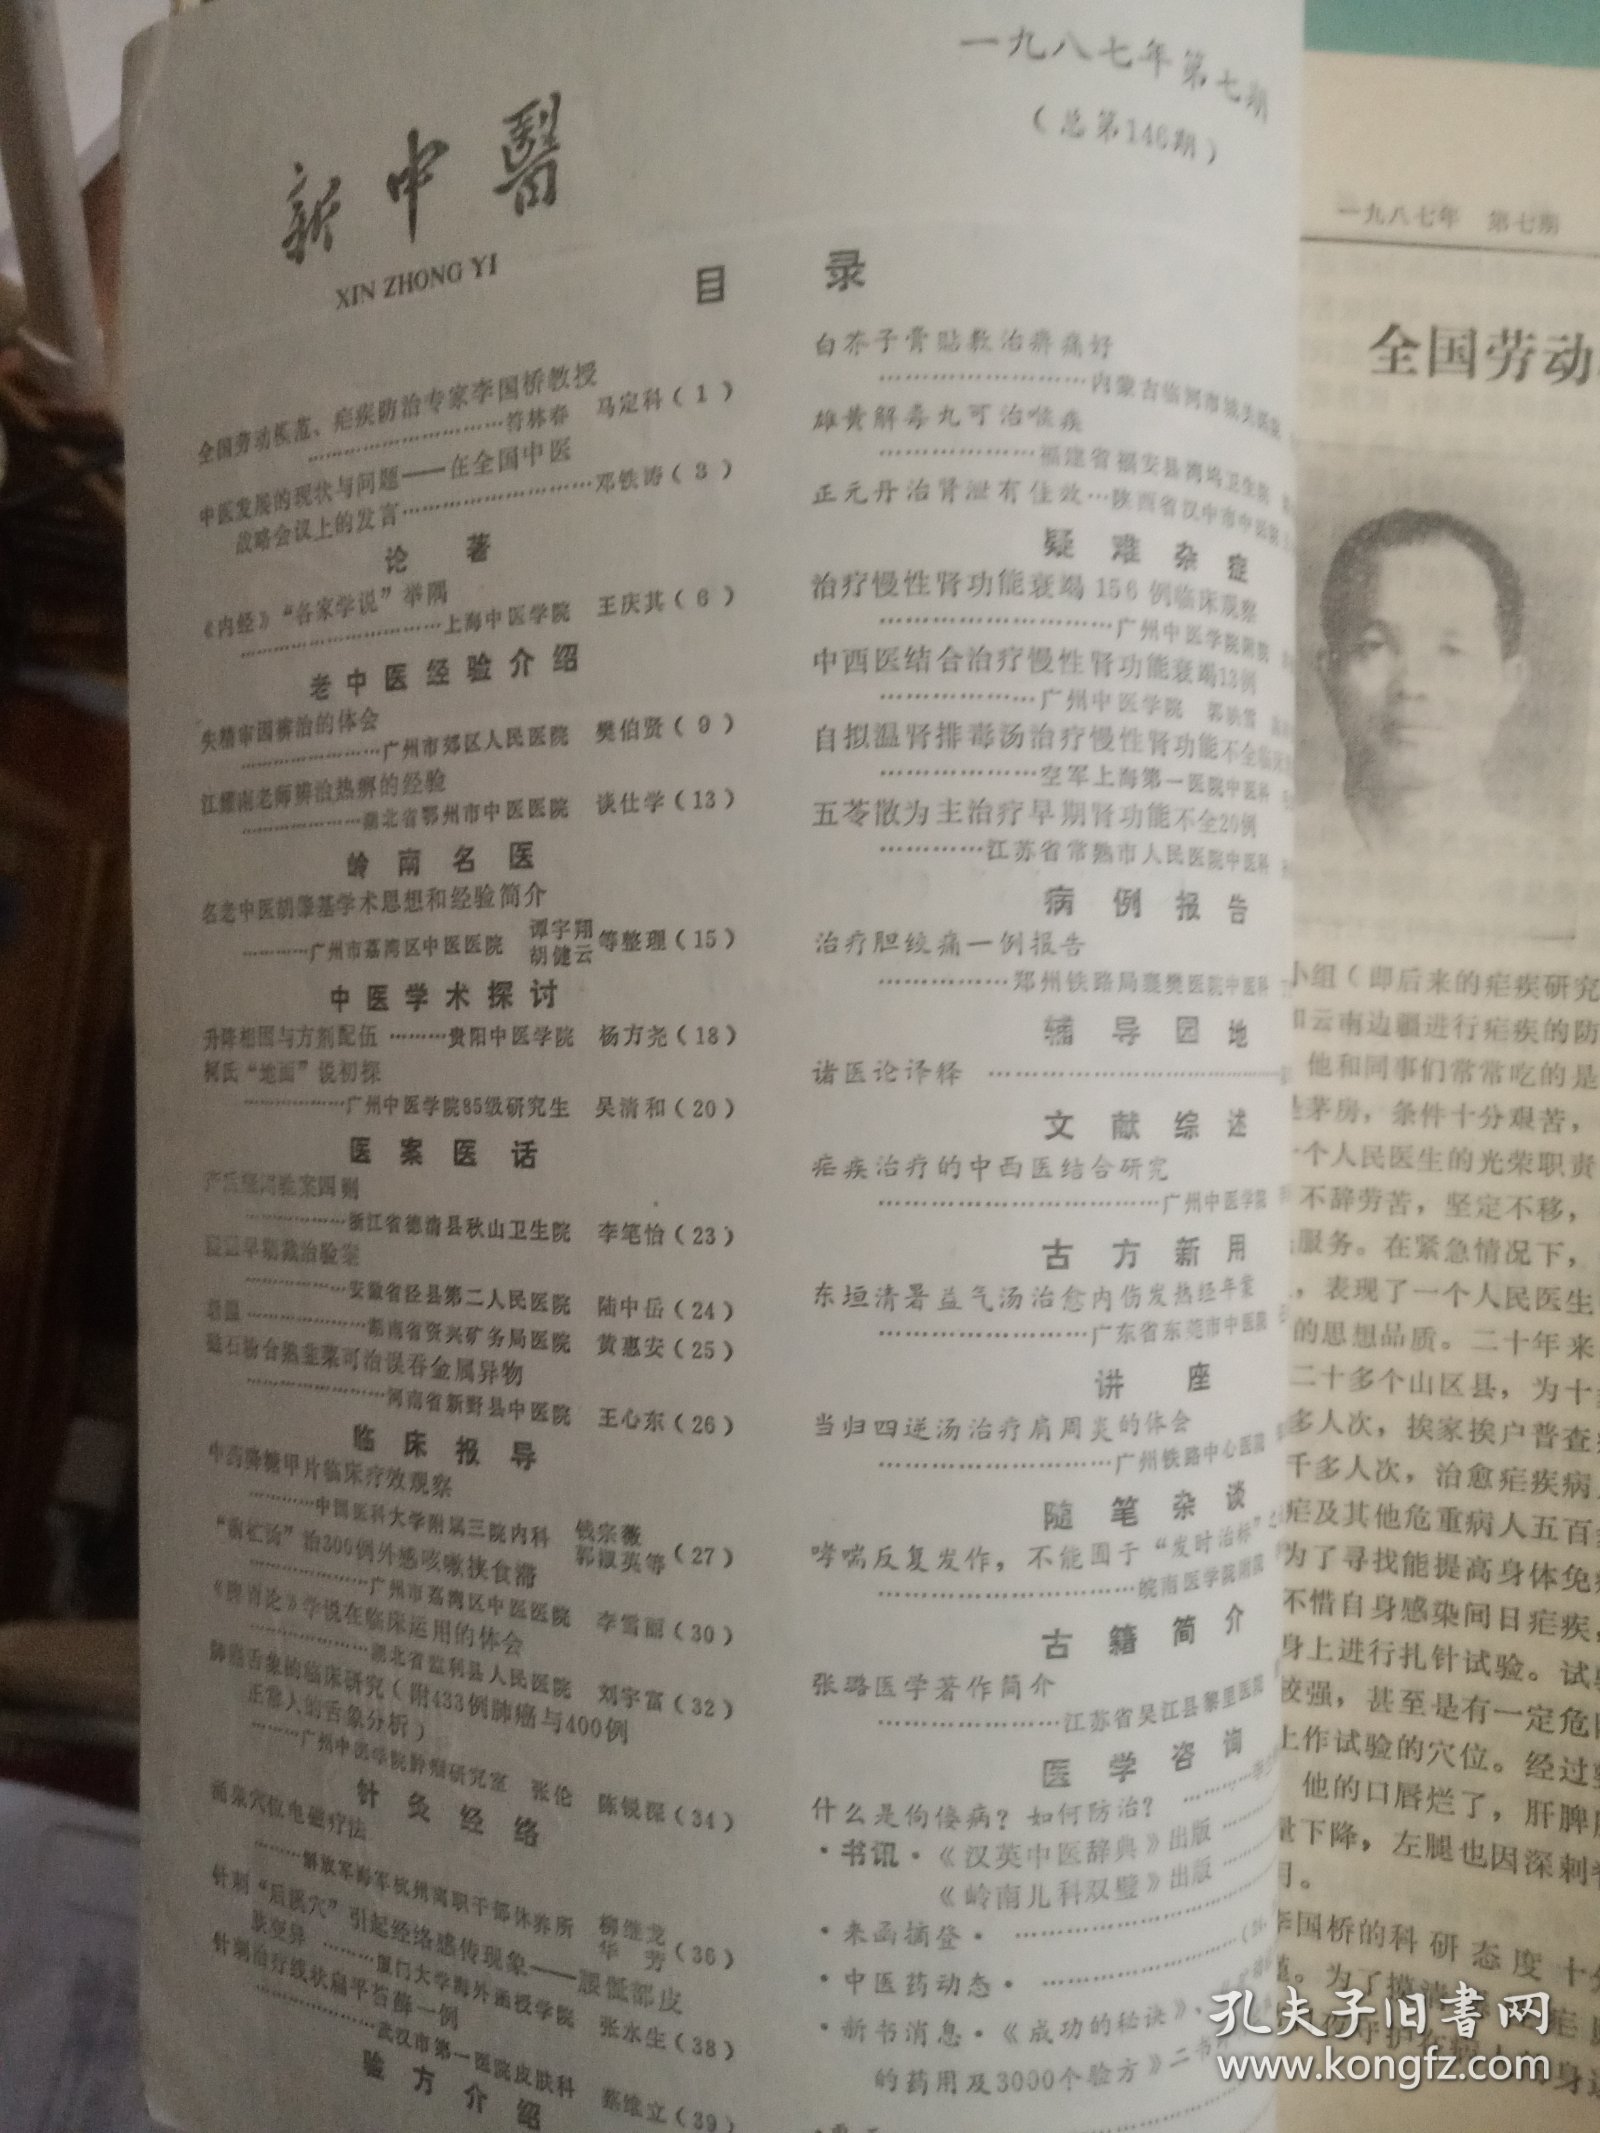 一九八七年第七期
（总第146期）
新中醫
XIN ZHONG YI
目 录
全国劳动模范、疟疾防治专家李国桥教授
………………………符林春 马定科（1）
中医发展的现状与问题——在全国中医
战略会议上的发言………………………邓铁涛（3）
论 著
《内经》“各家学说”举隅
………………………上海中医学院 王庆其（6）
老中医经验介绍
失精审因辨治的体会
………………广州市郊区人民医院 樊伯贤（9）
老师辨治热痹的经验
………………湖北省鄂州市中医医院 谈仕学（13）
岭南名医
名老中医胡肇基学术思想和经验简介
…………广州市荔湾区中医医院 谭宇翔
胡健云等整理（15）
中医学术探讨
升降相因与方剂配伍………贵阳中医学院 杨方尧（18）
柯氏“地面”说初探
………………广州中医学院85级研究生 吴清和（20）
医案医话
验案四则
………………浙江省德清县秋山卫生院 李笔怡（23）
早期截治验案
………………安徽省泾县第二人民医院 陆中岳（24）
………………湖南省资兴矿务局医院 黄惠安（25）
磁石粉合熟韭菜可治误吞金属异物
………………河南省新野县中医院 王心东（26）
临床报导
中药降糖甲片临床疗效观察
…………中国医科大学附属三院内科 钱宗薇
郭淑英等（27）
治300例外感咳嗽挟食滞
………………广州市荔湾区中医医院 李雪丽（30）
《脾胃论》学说在临床运用的体会
………………湖北省监利县人民医院 刘宇富（32）
肺癌舌象的临床研究（附433例肺癌与400例
正常人的舌象分析）
………广州中医学院肿瘤研究室 张伦 陈锐深（34）
针灸经络
涌泉穴位电磁疗法
………解放军海军杭州离职干部休养所 柳继龙
华 芳（36）
针刺“后溪穴”引起经络感传现象——腰骶部皮
肤变异………厦门大学海外函授学院 张水生（38）
针刺治疗线状扁平苔藓一例
………………武汉市第一医院皮肤科 蔡维立（39）
验方介绍
白芥子膏贴敷治痹痛好
………………………内蒙古临河市
雄黄解毒丸可治喉痰
………………福建省福安县湾坞卫生院
正元丹治肾泄有佳效…陕西省汉中市中医院
疑难杂症
治疗慢性肾功能衰竭156例临床观察
………………………广州中医学院附院
中西医结合治疗慢性肾功能衰竭13例
………………广州中医学院
自拟温肾排毒汤治疗慢性肾功能不全临床
………………空军上海第一医院中医科
五苓散为主治疗早期肾功能不全20例
…………江苏省常熟市人民医院中医科
病例报告
治疗胆绞痛一例报告
………………郑州铁路局襄樊医院中医科
辅导园地
诸医论译释………………………
文献综述
疟疾治疗的中西医结合研究
………………………广州中医学院
古方新用
东垣清暑益气汤治愈内伤发热经年案
………………………广东省东莞市中医院
讲 座
当归四逆汤治疗肩周炎的体会
………………………广州铁路中心医院
随笔杂谈
哮喘反复发作，不能囿于“发时治标”之
………………………皖南医学院附院
古籍简介
张璐医学著作简介
………………江苏省吴江县黎里医院
医学咨询
什么是佝偻病？如何防治？………
·书讯·《汉英中医辞典》出版………
《岭南儿科双璧》出版………
·来函摘登·………………
·中医药动态·………………
·新书消息·《成功的秘诀》、
的药用及3000个验方》二书
一九八七年 第七期
全国劳动
小组（即后来的疟疾研究
和云南边疆进行疟疾的防
他和同事们常常吃的是
是茅房，条件十分艰苦，
一个人民医生的光荣职责
不辞劳苦，坚定不移，
服务。在紧急情况下，
，表现了一个人民医生
的思想品质。二十年来
二十多个山区县，为十
多人次，挨家挨户普查
千多人次，治愈疟疾病
症及其他危重病人五百
为了寻找能提高身体免
不惜自身感染间日疟疾，
身上进行扎针试验。试
较强，甚至是有一定危
上作试验的穴位。经过
他的口唇烂了，肝脾
量下降，左腿也因深刺
用。
李国桥的科研态度十分
为了摸清
孔夫子旧書网
www.kongfz.com